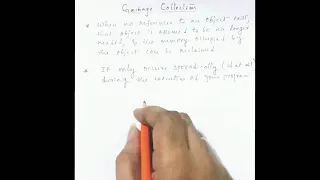 Garbage Collection
* When no reference to an object exist,
that object is assumed to be no longer
needed, & the memory occupied by
the object can be reclaimed
* It only occurs sporadically (if at all)
during the execution of your program